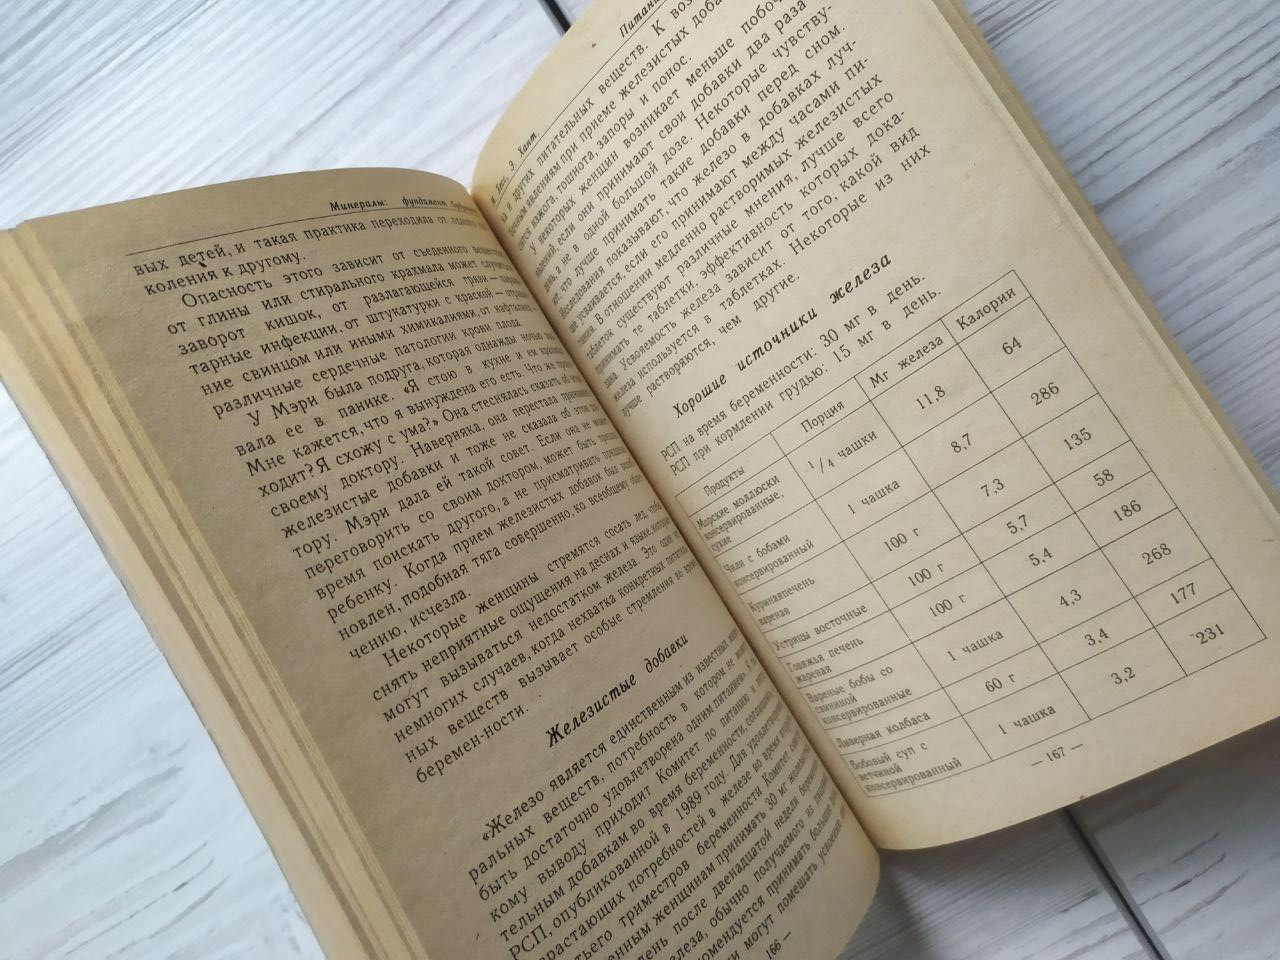 Минералы: фундамент
вых детей, и такая практика переходила от одного
коления к другому.
Опасность этого зависит от съеденного вещества
от глины или стирального крахмала может случиться
заворот кишок, от разлагающейся грязи —
тарные инфекции, от штукатурки с краской —
ние свинцом или иными химикалиями, от нафталина —
различные сердечные патологии крови плода.
У Мэри была подруга, которая однажды ночью
вала ее в панике. «Я стою в кухне и ем
Мне кажется, что я вынуждена его есть. Что же
ходит? Я схожу с ума?» Она стеснялась сказать об этом
своему доктору. Наверняка, она перестала принимать
железистые добавки и тоже не сказала об этом
тору. Мэри дала ей такой совет. Если она не может
переговорить со своим доктором, может быть,
время поискать другого, а не присматривать
ребенку. Когда прием железистых добавок был
новлен, подобная тяга совершенно, ко всеобщему
чению, исчезла.
Некоторые женщины стремятся сосать лед, чтобы
снять неприятные ощущения на деснах и языке, которые
могут вызываться недостатком железа. Это один из
немногих случаев, когда нехватка конкретных
ных веществ вызывает особые стремления во время
беремен-ности.
Железистые добавки
«Железо является единственным из известных
ральных веществ, потребность в котором не может
быть достаточно удовлетворена одним питанием».
кому выводу приходит Комитет по питанию и
тельным добавкам во время беременности,
РСП, опубликованной в 1989 году. Для
зрастающих потребностей в железе во время
тьего триместров беременности Комитет
енным женщинам принимать 30 мг железа
день после двенадцатой недели
железа, обычно получаемого из
комендуется принимать
могут помешать
166 —
Э. Хант.
и других питательных веществ. К
ным явлениям при приеме железистых
изжога, тошнота, запоры и понос.
У некоторых женщин возникает меньше
явлений, если они принимают свои добавки два раза
а не в одной большой дозе. Некоторые чувству-
что лучше принимать такие добавки перед сном.
Исследования показывают, что железо в добавках луч-
ше усваивается, если его принимают между часами пи-
тания. В отношении медленно растворимых железистых
таблеток существуют различные мнения, лучше всего
принимать те таблетки, эффективность которых дока-
зана. Усвояемость железа зависит от того, какой вид
железа используется в таблетках. Некоторые из них
лучше растворяются, чем другие.
Хорошие источники железа
РСП на время беременности: 30 мг в день.
РСП при кормлении грудью: 15 мг в день.
Продукты Порция Мг железа Калории
Морские моллюски
консервированные,
сухие 1/4 чашки 11,8 64
Чили с бобами
консервированный 1 чашка 8,7 286
Куринаяпечень
вареная 100 г 7,3 135
Устрицы восточные 100 г 5,7 58
Говяжья печень
жареная 100 г 5,4 186
Вареные бобы со
свининой
консервированные 1 чашка 4,3 268
Ливерная колбаса 60 г 3,4 177
Бобовый суп с
ветчиной
консервированный 1 чашка 3,2 231
— 167 —